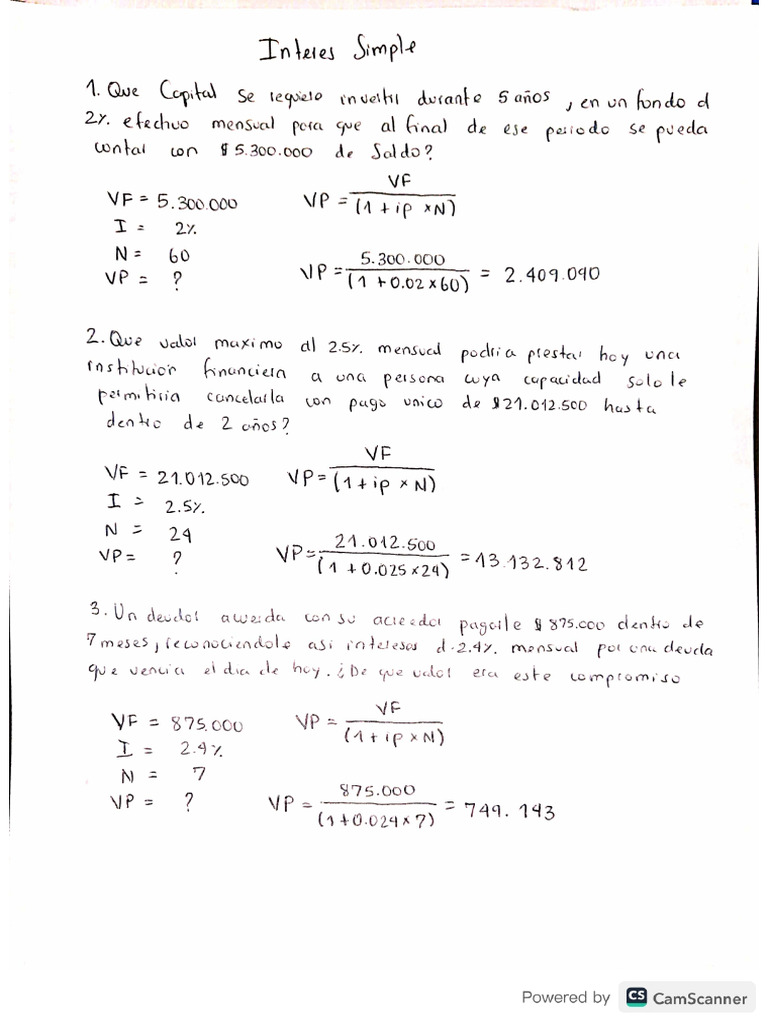 Interes Simple
1. Que Capital se requiere invertir durante 5 años, en un fondo al
2%. efectivo mensual para que al final de ese periodo se pueda
contar con $5.300.000 de Saldo?
VF = 5.300.000
I = 2%
N = 60
VP = ?
VP = VF
(1 + ip × N)
VP = 5.300.000
(1 + 0.02 × 60) = 2.409.090
2. Que valor maximo al 2.5%. mensual podria prestar hoy una
institucion financiera a una persona cuya capacidad solo le
permitiria cancelarla con pago unico de $21.012.500 hasta
dentro de 2 años?
VF = 21.012.500
I = 2.5%.
N = 24
VP = ?
VP = VF
(1 + ip × N)
VP = 21.012.500
(1 + 0.025 × 24) = 13.132.812
3. Un deudor acuerda con su acreedor pagarle $ 875.000 dentro de
7 meses, reconociendole asi intereses al 2.4%. mensual por una deuda
que vencia el dia de hoy. ¿De que valor era este compromiso
VF = 875.000
I = 2.4%
N = 7
VP = ?
VP = VF
(1 + ip × N)
VP = 875.000
(1 + 0.024 × 7) = 749.143
Powered by CS CamScanner